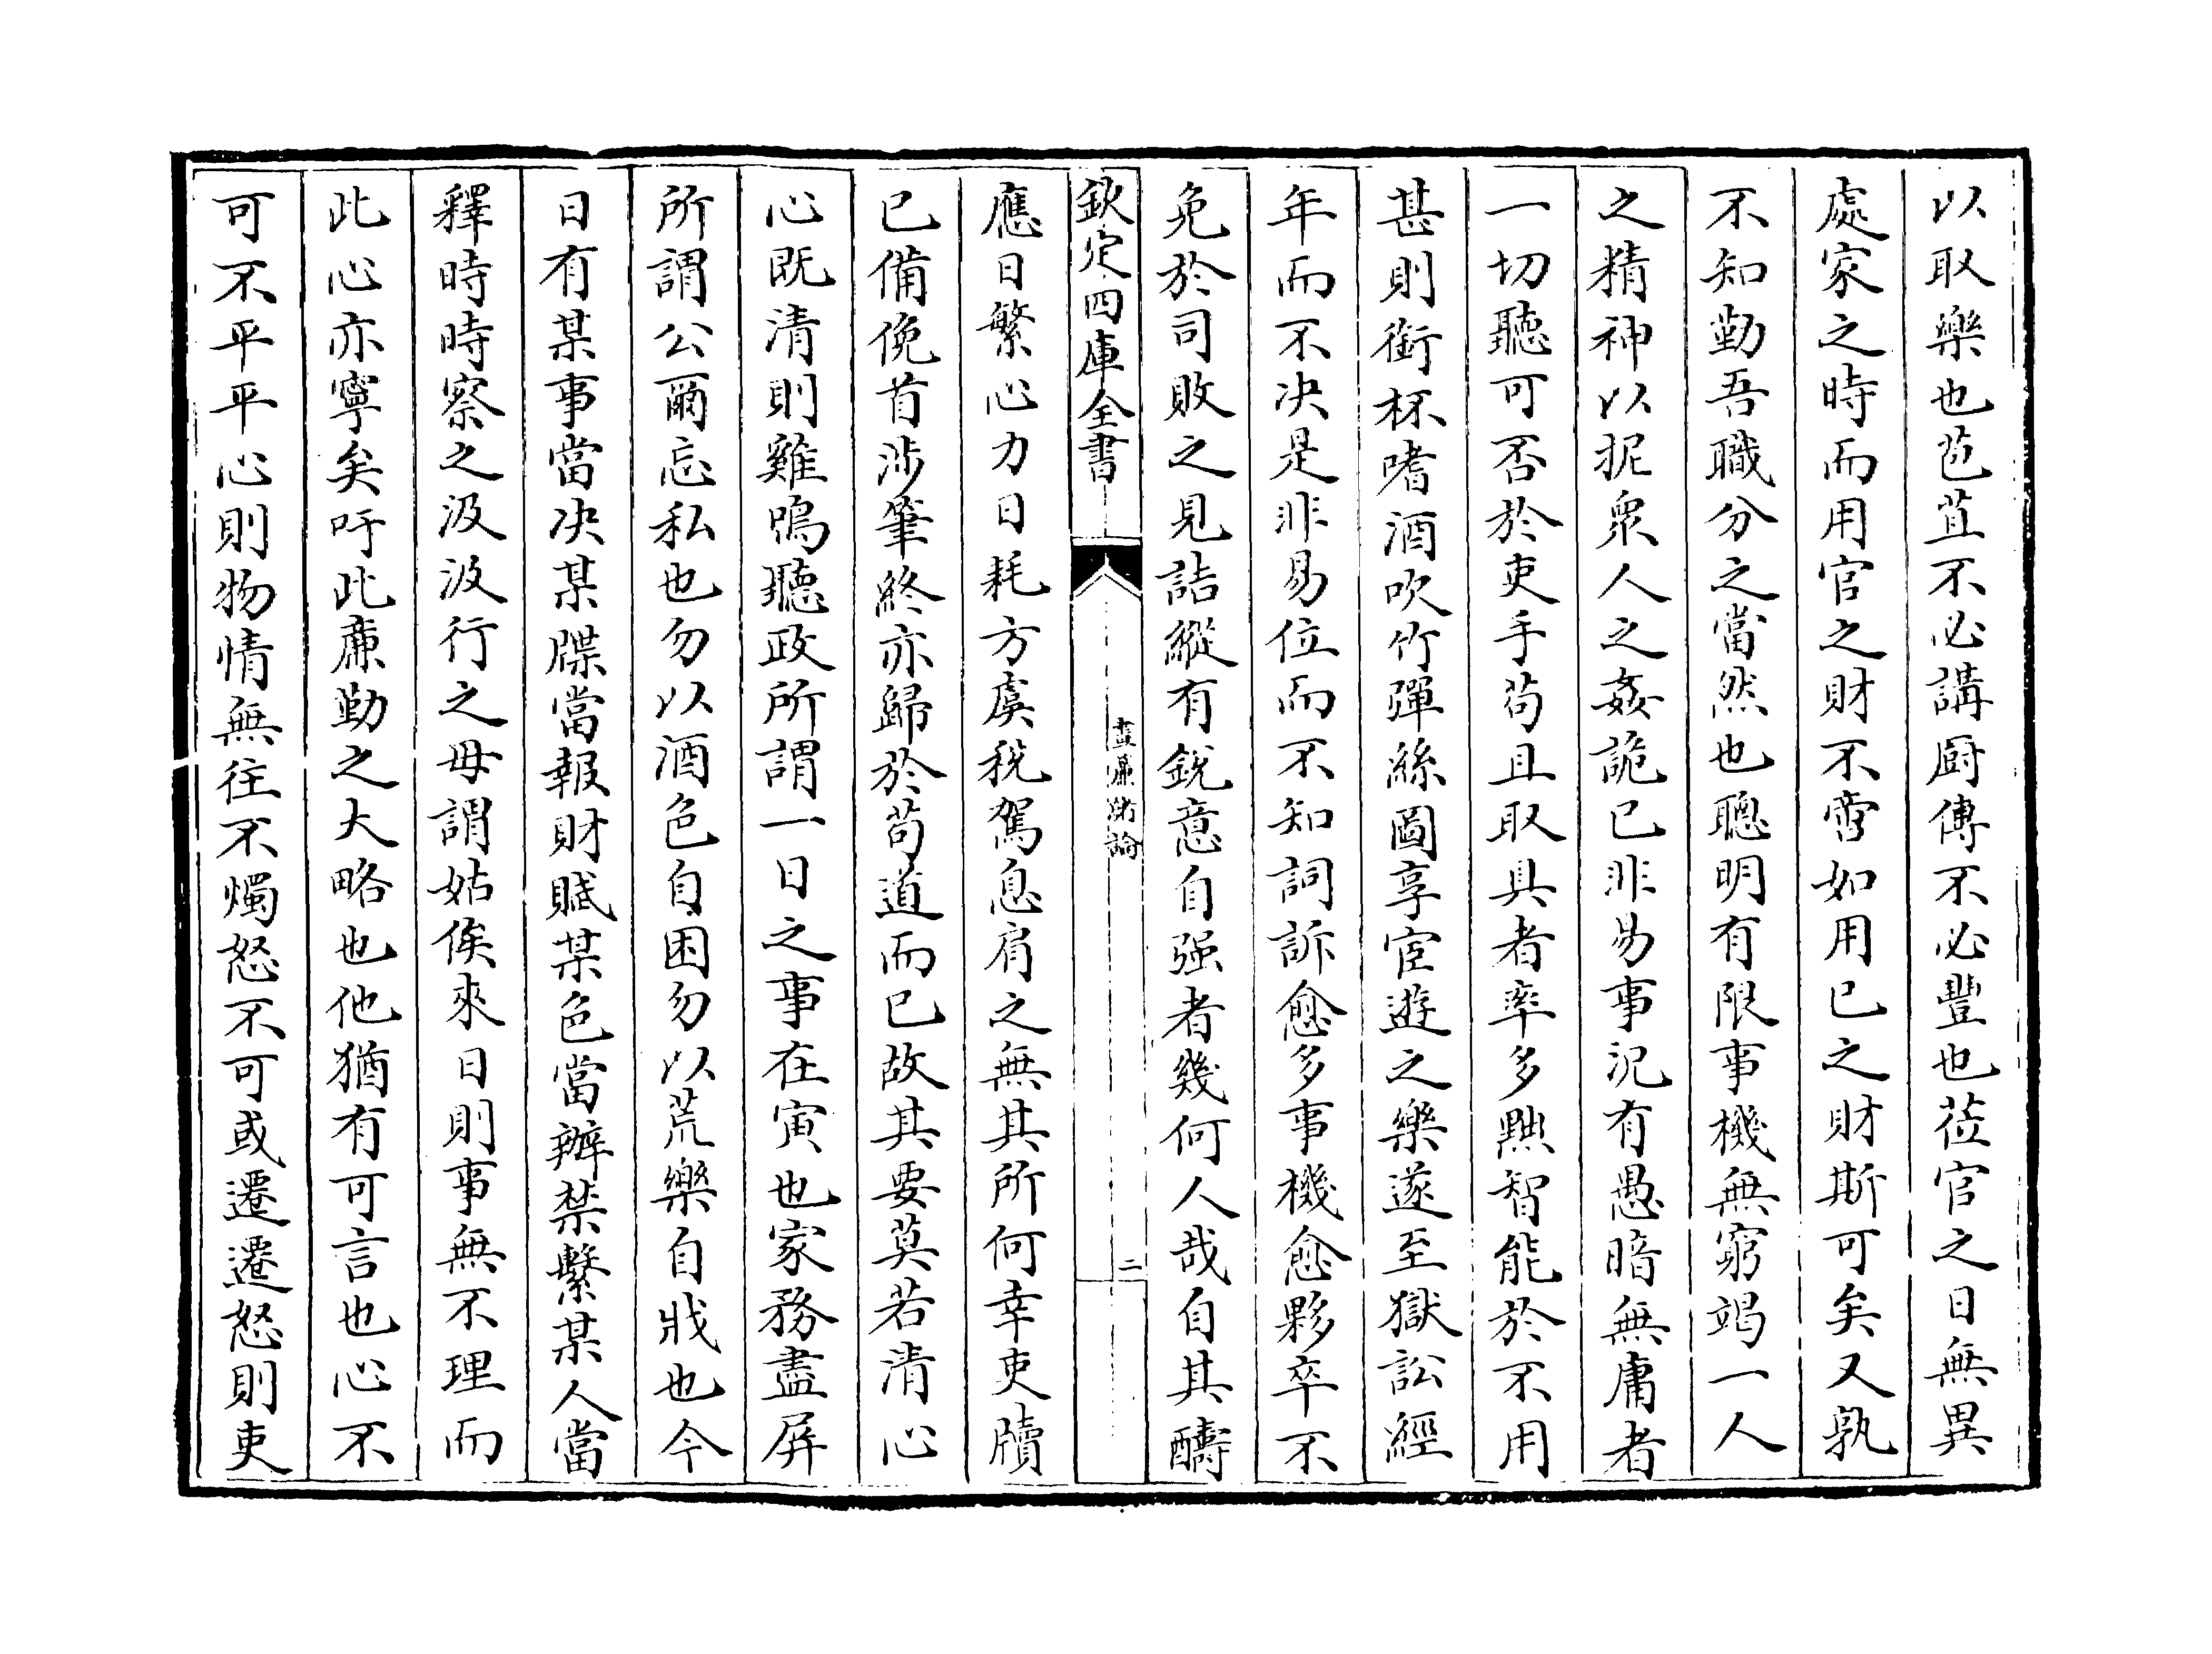 以取樂也苞苴不必講厨傳不必豐也莅官之日無異
處家之時而用官之財不啻如用已之財斯可矣又孰
不知勤吾職分之當然也聰明有限事機無窮竭一人
之精神以扼衆人之姦詭已非易事况有愚暗無庸者
一切聽可否於吏手茍且取具者率多黠智能於不用
甚則銜杯嗜酒吹竹彈絲圖享宦遊之樂遂至獄訟經
年而不决是非易位而不知詞訴愈多事機愈夥卒不
免於司敗之見詰縱有銳意自强者幾何人哉自其醻
欽定四庫全書
晝簾緒論
二
應日繁心力日耗方虞稅駕息肩之無其所何幸吏牘
已備俛首涉筆終亦歸於茍道而已故其要莫若清心
心既清則雞鳴聽政所謂一日之事在寅也家務盡屏
所謂公爾忘私也勿以酒色自困勿以荒樂自戕也今
日有某事當决某牒當報財賦某色當辦禁繫某人當
釋時時察之汲汲行之毋謂姑俟來日則事無不理而
此心亦寧矣吁此廉勤之大略也他猶有可言也心不
可不平平心則物情無往不燭怒不可或遷遷怒則吏